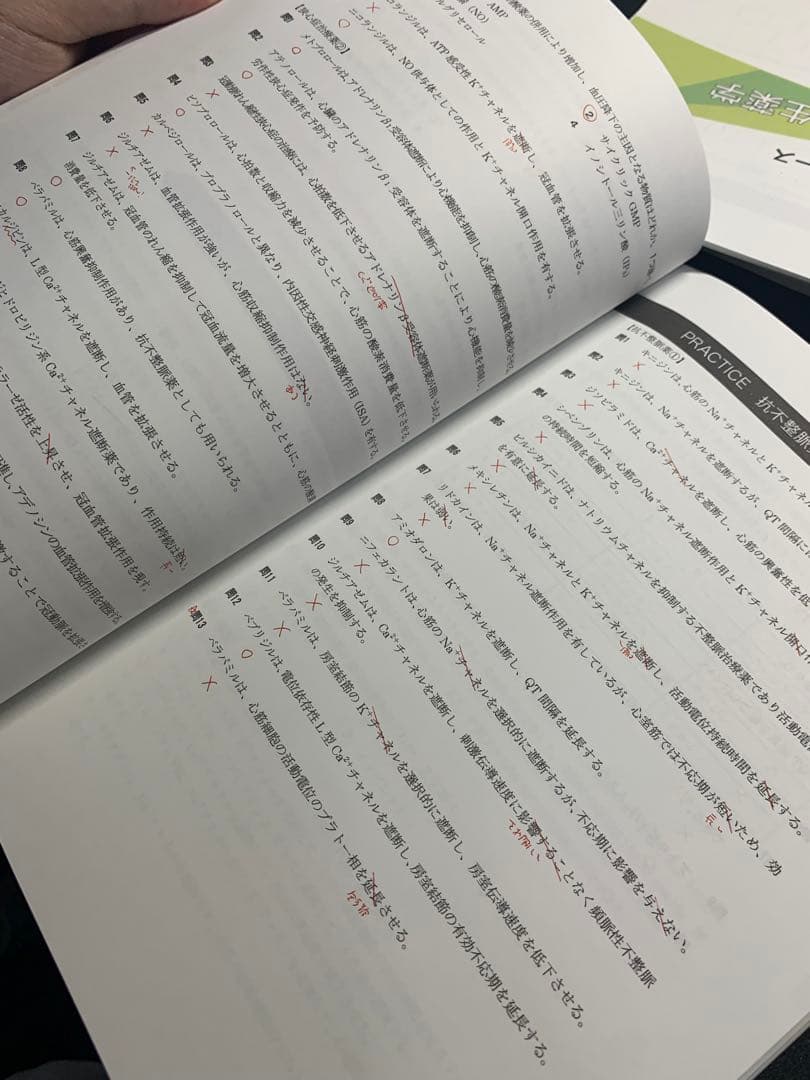 の併用により増加し、血圧降下の主因となる物質はどれか。
(NO)
② サイクリック GMP
AMP
4 イノシトール三リン酸 (IP₃)
ニコランジルは、ATP 感受性 K⁺チャネルを遮断し、冠血管を拡張させる。
×
ニコランジルは、NO 供与体としての作用と K⁺チャネル開口作用を有する。
○
【狭心症治療薬②】
問1 メトプロロールは、アドレナリンβ₁受容体遮断により心機能を抑制し、心筋の酸素消費量を減少させ
○
問2 アテノロールは、心臓のアドレナリンβ₁受容体を遮断することにより心機能を抑制し、
労作性狭心症発作を予防する。
○
問3 冠動脈れん縮性狭心症の治療には、心拍数を低下させるアドレナリンβ受容体遮断薬が用いられる。
×
問4 ビソプロロールは、心拍数と収縮力を減少させることで、心筋の酸素消費量を低下させる。
○
問5 カルベジロールは、プロプラノロールと異なり、内因性交感神経刺激作用 (ISA) を有する。
×
問6 ジルチアゼムは、血管拡張作用が強いが、心筋収縮抑制作用はない。
× ある
ジルチアゼムは、冠血管のれん縮を抑制して冠血流量を増大させるとともに、心筋の酸素
消費量を低下させる。
問7 ベラパミルは、心筋興奮抑制作用があり、抗不整脈薬としても用いられる。
○
問8
L 型 Ca²⁺チャネルを遮断し、血管を拡張させる。
○
ジヒドロピリジン系 Ca²⁺チャネル遮断薬であり、作用持続は短い。
ラーゼ活性を上昇させ、冠血管拡張作用を現す。
アデノシンの血管拡張作用を増強する。
することで冠動脈を拡張
生薬学
PRACTICE 抗不整脈
【抗不整脈薬①】
問1 キニジンは、心筋の Na⁺チャネルと K⁺チャネ
×
問2 キニジンは、Na⁺チャネルを遮断するが、QT 間隔に
×
問3 ジソピラミドは、Ca²⁺チャネルを遮断し、心筋の興奮性を低
×
問4 シベンゾリンは、心筋の Na⁺チャネル遮断作用と K⁺チャネル開口作
の持続時間を短縮する。
×
問5 ピルシカイニドは、ナトリウムチャネルを抑制する不整脈治療薬であり活動電
を有意に延長する。
×
問6 メキシレチンは、Na⁺チャネルと K⁺チャネルを遮断し、活動電位持続時間を延長する。
×
問7 リドカインは、Na⁺チャネル遮断作用を有しているが、心室筋では不応期が短いため、効
果は弱い。
×
問8 アミオダロンは、K⁺チャネルを遮断し、QT 間隔を延長する。
○
問9 ニフェカラントは、心筋の Na⁺チャネルを選択的に遮断するが、不応期に影響を与えない。
×
問10 ジルチアゼムは、Ca²⁺チャネルを遮断し、刺激伝導速度に影響することなく頻脈性不整脈
の発生を抑制する。
×
問11 ベラパミルは、房室結節の K⁺チャネルを選択的に遮断し、房室伝導速度を低下させる。
×
問12 ベプリジルは、電位依存性 L 型 Ca²⁺チャネルを遮断し、房室結節の有効不応期を延長する。
○
問13 ベラパミルは、心筋細胞の活動電位のプラトー相を延長させる。
×